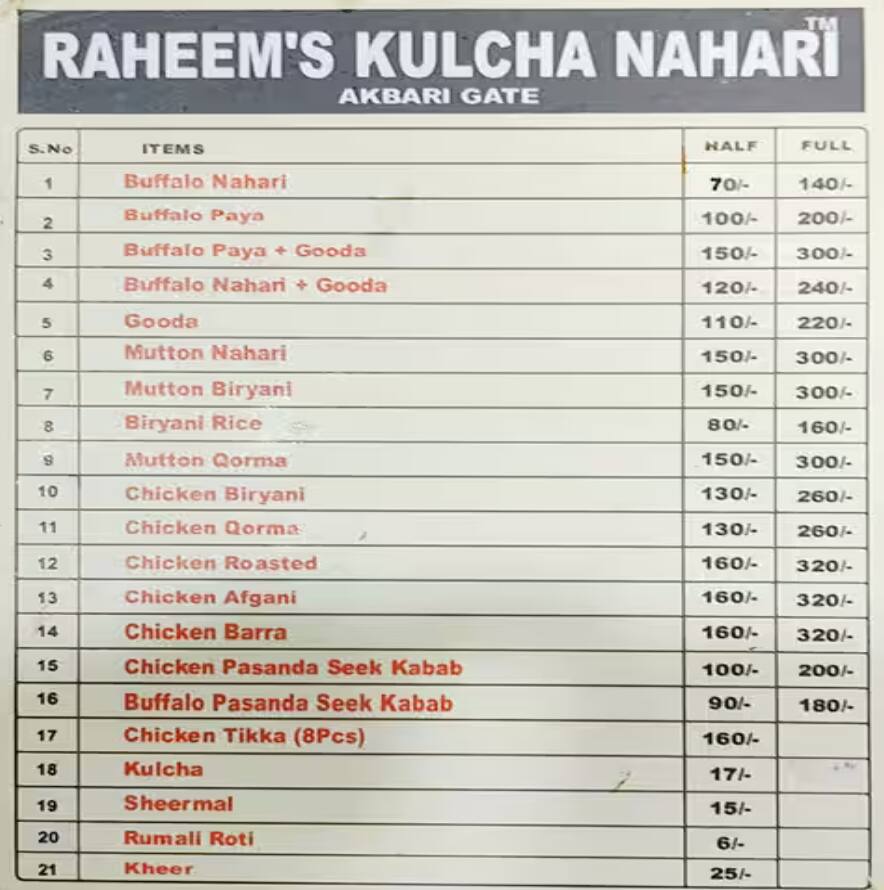 RAHEEM'S KULCHA NAHARI TM
AKBARI GATE
S.No ITEMS HALF FULL
1 Buffalo Nahari 70/- 140/-
2 Buffalo Paya 100/- 200/-
3 Buffalo Paya + Gooda 150/- 300/-
4 Buffalo Nahari + Gooda 120/- 240/-
5 Gooda 110/- 220/-
6 Mutton Nahari 150/- 300/-
7 Mutton Biryani 150/- 300/-
8 Biryani Rice 80/- 160/-
9 Mutton Qorma 150/- 300/-
10 Chicken Biryani 130/- 260/-
11 Chicken Qorma 130/- 260/-
12 Chicken Roasted 160/- 320/-
13 Chicken Afgani 160/- 320/-
14 Chicken Barra 160/- 320/-
15 Chicken Pasanda Seek Kabab 100/- 200/-
16 Buffalo Pasanda Seek Kabab 90/- 180/-
17 Chicken Tikka (8Pcs) 160/-
18 Kulcha 17/-
19 Sheermal 15/-
20 Rumali Roti 6/-
21 Kheer 25/-